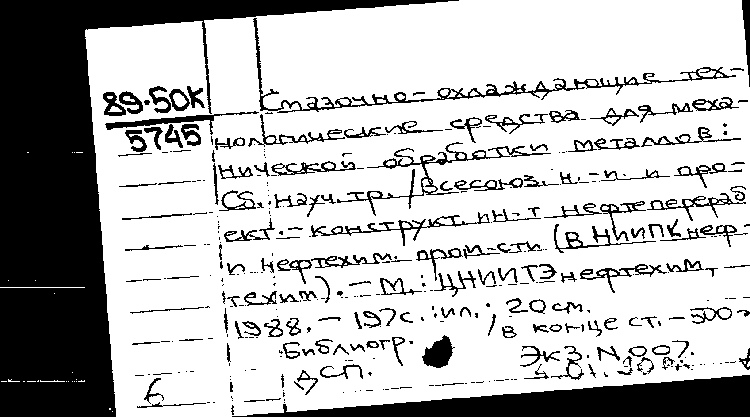 89-50К
5745
Смазочно-охлаждающие тех-
нологические средства для меха-
нической обработки металлов:
Сб. науч. тр. / Всесоюз. н.-и. и про-
ект.-конструкт. ин-т нефтеперераб
и нефтехим. пром-сти (ВНИИПКнеф-
техим). - М.: ЦНИИТЭнефтехим,
1988. - 197с.: ил.; 20см.
Библиогр. / в конце ст. - 500э
ДСП. Экз. N 007.
6